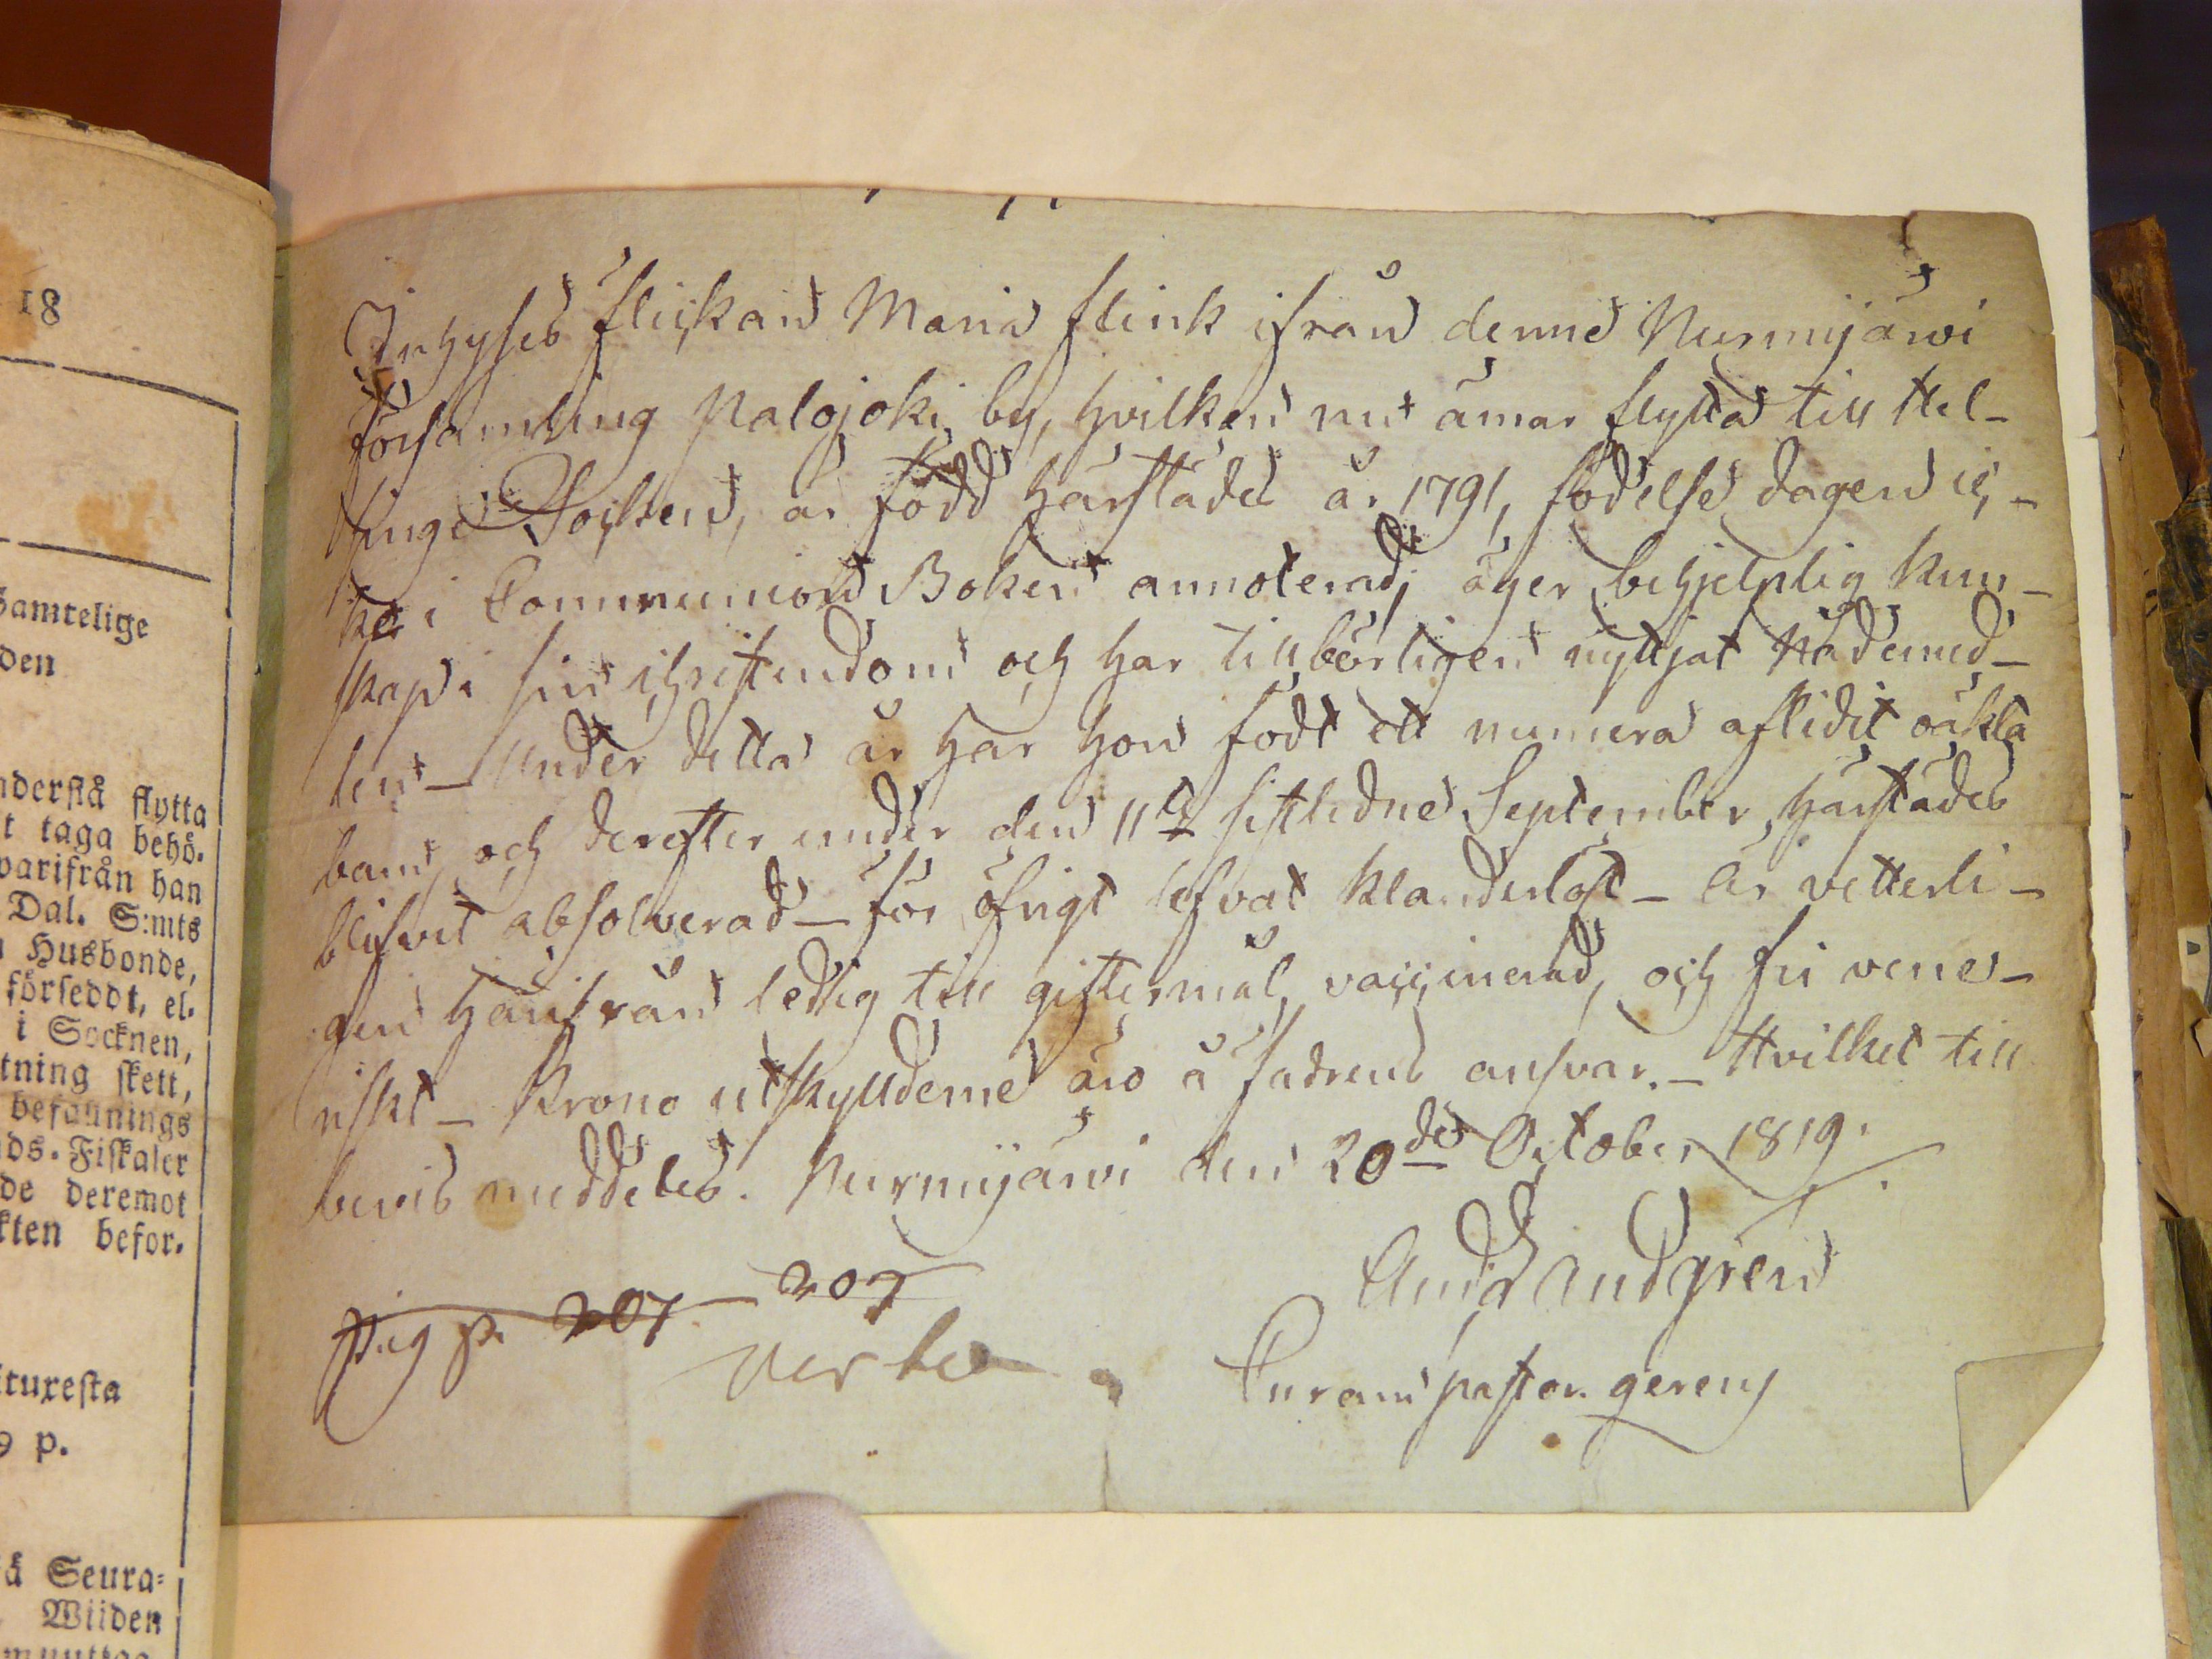 18
Samtelige
den
nderstå flytta
t taga behö-
varifrån han
Dal. S:mts
Husbonde,
förseddt, el-
i Socknen,
tning skett,
befallnings
ds-Fiskaler
de deremot
kten befor-
ituxesta
9 p.
å Seura-
Wiiden
muuttaa
Inhyses flickan Maria Flink ifrån denne Nurmijärvi
församling Palojoki by, hvilken nu ämar flytta till Hel-
singe Socken, är född härstädes år 1791, födelse dagen ic-
ke i Communion Boken annoterad; äger behjelplig kun-
skap i sin christendom och har tillbörligen nyttjat Nådemed-
len – Under detta år har hon födt ett numera aflidit oäkta
barn, och derefter under den 11te sistledne September, härstädes
blifvit absolverad – för öfrigt lefvat klanderlöst – är vetterli-
gen härifrån ledig till giftermål, vaccinerad, och fri vene-
riskt – Krono utskyllderne äro å fadrens ansvar. – Hvilket till
bevis meddeles. Nurmijärvi den 20de October 1819.
And Landgren
Curam pastor. gerens
pag 207 207
Verte